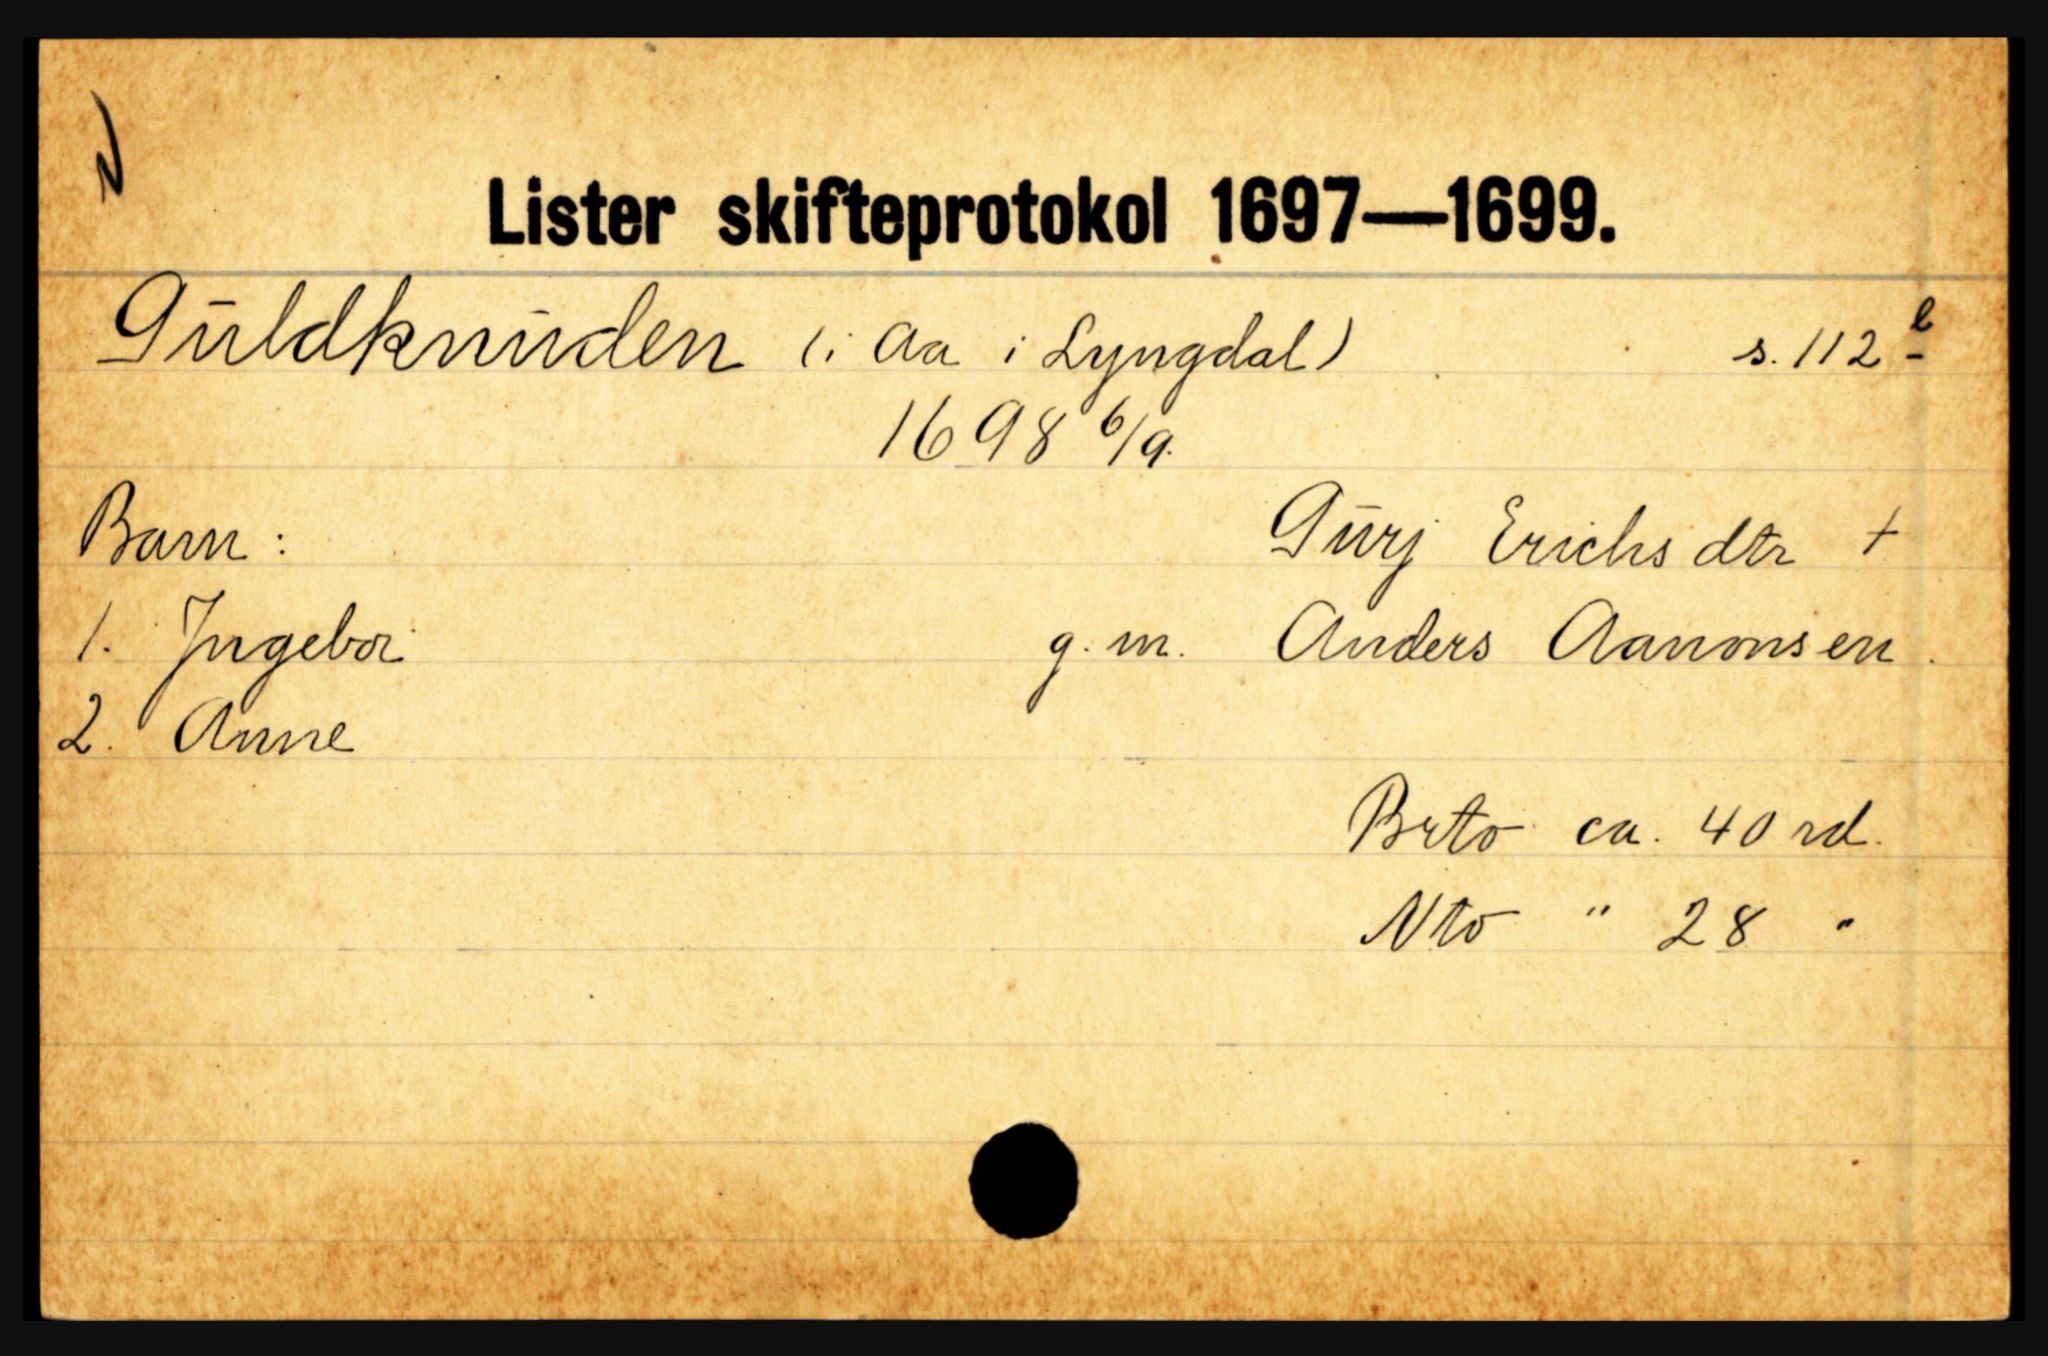 Lister skifteprotokol 1697—1699.
Guldknuden (i Aa i Lyngdal) s. 112 b
1698 6/9.
Barn: Gurj Erichsdtr +
1. Ingebor g. m. Anders Aanonsen.
2. Anne
Brto ca. 40 rd.
Nto " 28 "